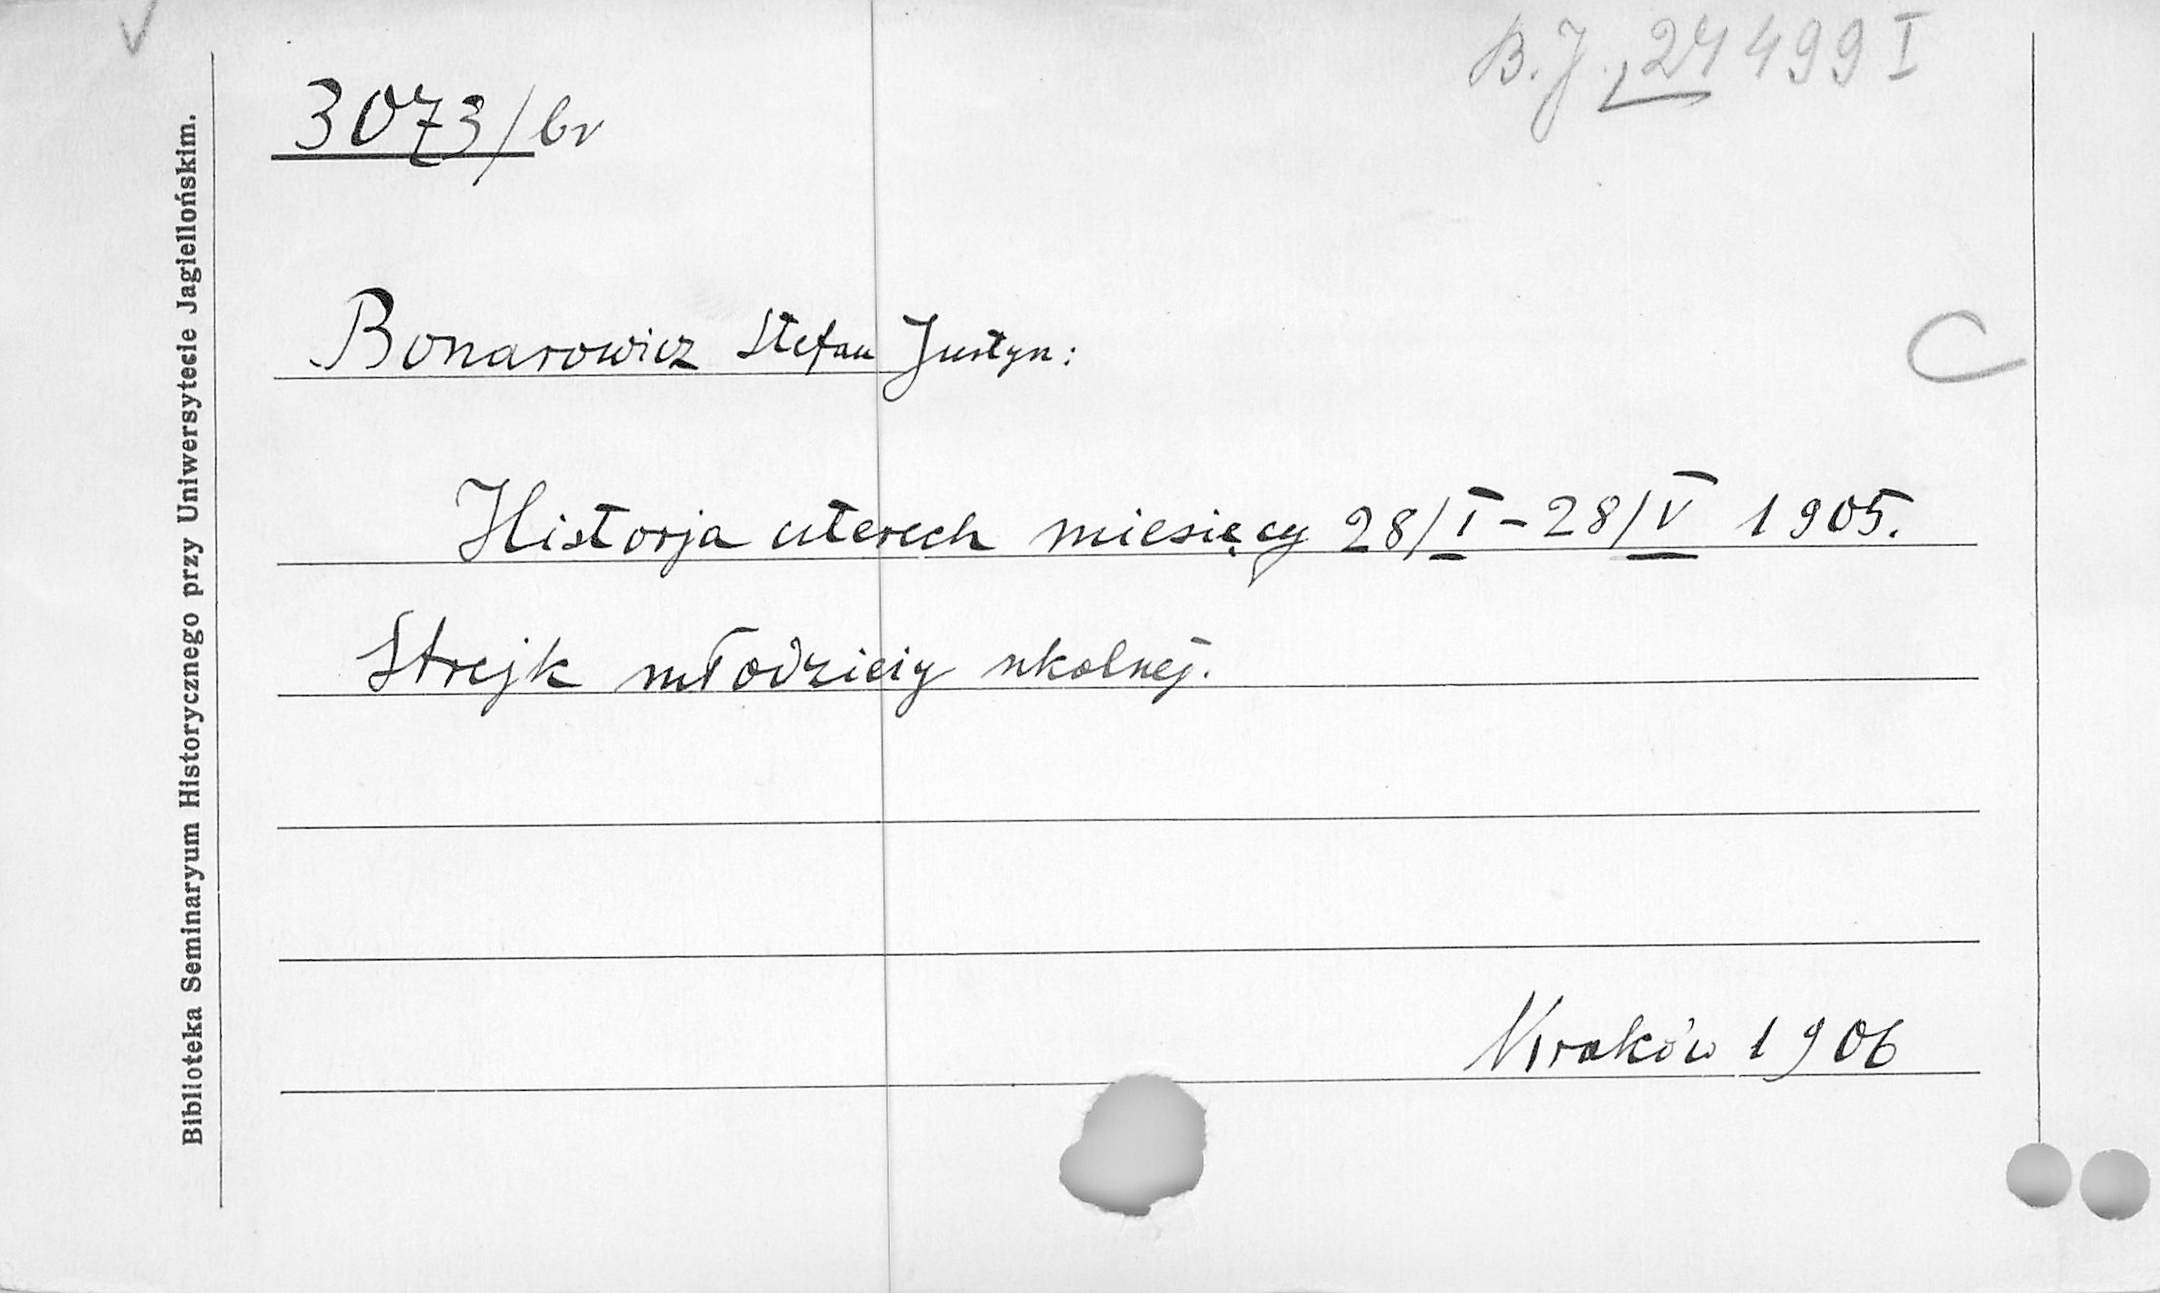 B. J. 24 499 I
3073/br
Bonarowicz Stefan Justyn:
Historja czterech miesięcy 28/I-28/V 1905.
Strejk młodzieży szkolnej.
Kraków 1906
C
Biblioteka Seminaryum Historycznego przy Uniwersytecie Jagiellońskim.